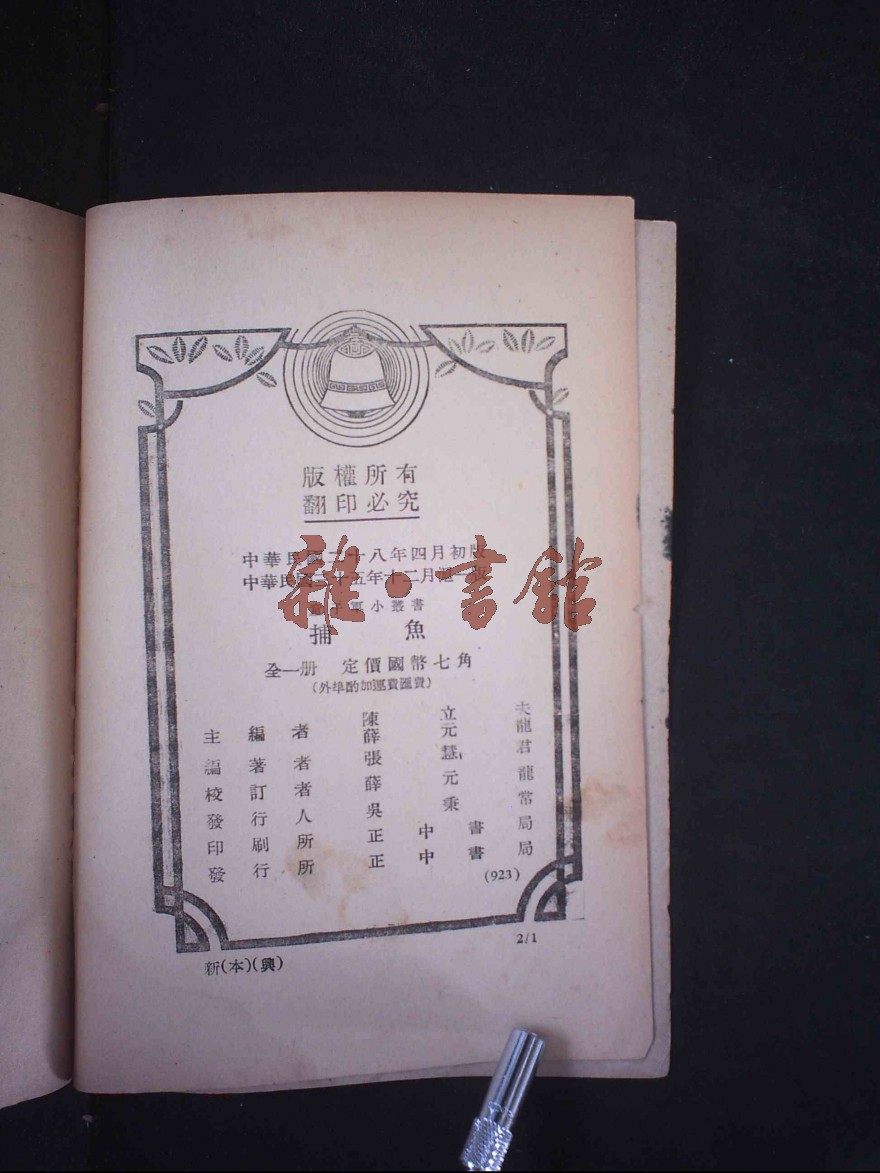 版權所有
翻印必究
中華民國二十八年四月初版
中華民國三十五年十二月滬一版
小叢書
捕魚
全一册 定價國幣七角
(外埠酌加運費匯費)
主編者 陳立夫
薛元龍
編著者 張慧君
校訂者 薛元龍
發行人 吳秉常
印刷所 正中書局
發行所 正中書局
(923)
2/1
新(本)(興)
雜·書館